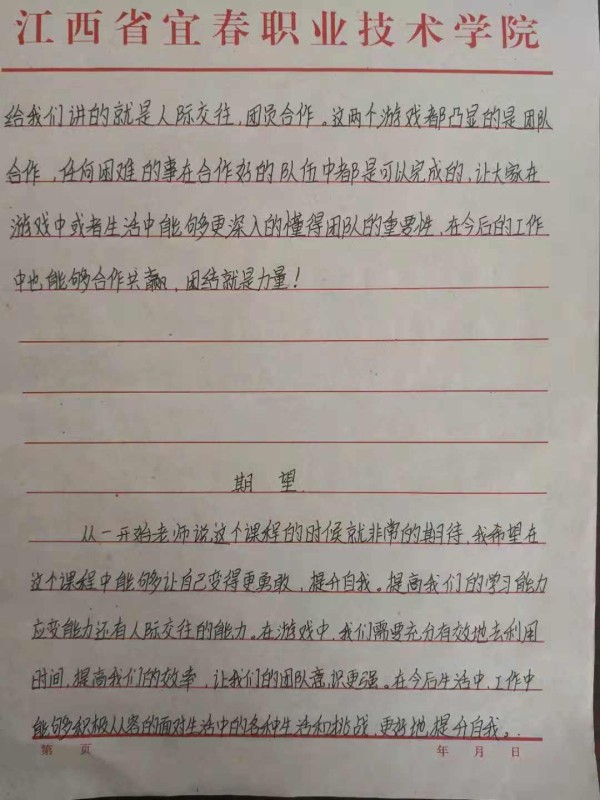 江西省宜春职业技术学院
给我们讲的就是人际交往，团员合作。这两个游戏都凸显的是团队
合作，任何困难的事在合作好的队伍中都是可以完成的，让大家在
游戏中或者生活中能够更深入的懂得团队的重要性，在今后的工作
中也能够合作共赢，团结就是力量！
期 望
从一开始老师说这个课程的时候就非常的期待，我希望在
这个课程中能够让自己变得更勇敢，提升自我。提高我们的学习能力
应变能力还有人际交往的能力。在游戏中，我们需要充分有效地去利用
时间，提高我们的效率，让我们的团队意识更强。在今后生活中，工作中
能够积极从容的面对生活中的各种生活和挑战，更好地提升自我。
第 页 年 月 日